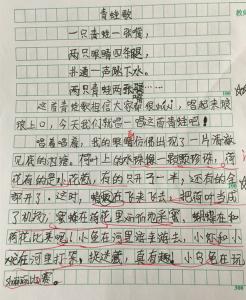 青蛙歌
一只青蛙一张嘴，
两只眼睛四条腿，
扑通一声跳下水。
两只青蛙两张嘴……
这首青蛙歌相信大家都很
唱起来朗
朗上口，今天我们就唱一唱这首青蛙吧！
唱着唱着，我的眼睛仿佛出现了一片清澈
见底的池塘。荷叶上的水珠像一颗颗珍珠，荷
花有的是小花苞，有的只开了一半，还有的全
都开了。这时，蜻蜓在飞来飞去，把荷叶当成
了机场，蜜蜂在荷花里采蜜，蝴蝶在和
荷花比美呢！小鱼在河里游来游去，小虾和小
在河里打架，捉迷藏，真有趣！小乌龟在玩
比赛。